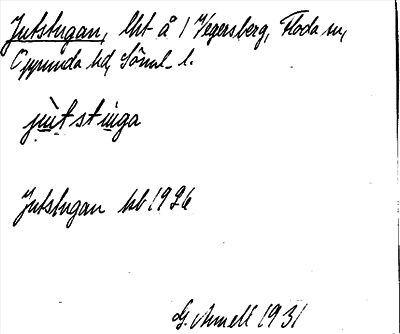 Jutstugan, lht å 1 Vegersberg, Floda sn,
Oppunda hd, Söml. l.
jùtstuga
Jutstugan hb 1926
G. Ahnell 1931